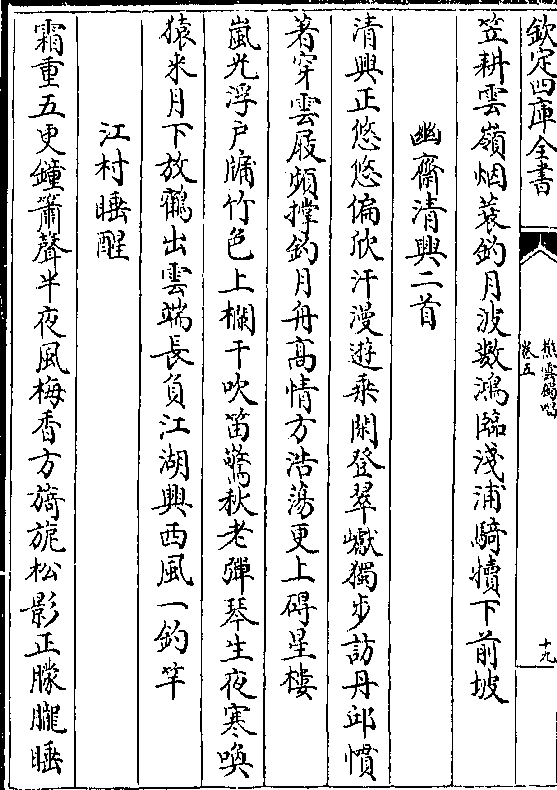 欽定四庫全書
樵雲獨唱
卷五
十九
笠耕雲嶺烟蓑釣月波數鴻臨淺浦騎犢下前坡
幽齋清興二首
清興正悠悠偏欣汗漫遊乘閑登翠巘獨步訪丹邱慣
著穿雲屐頻撑釣月舟高情方浩蕩更上碍星樓
嵐光浮户牖竹色上欄干吹笛驚秋老彈琴生夜寒喚
猿来月下放鶴出雲端長負江湖興西風一釣竿
江村睡醒
霜重五更鐘簫聲半夜風梅香方旖旎松影正朦朧睡